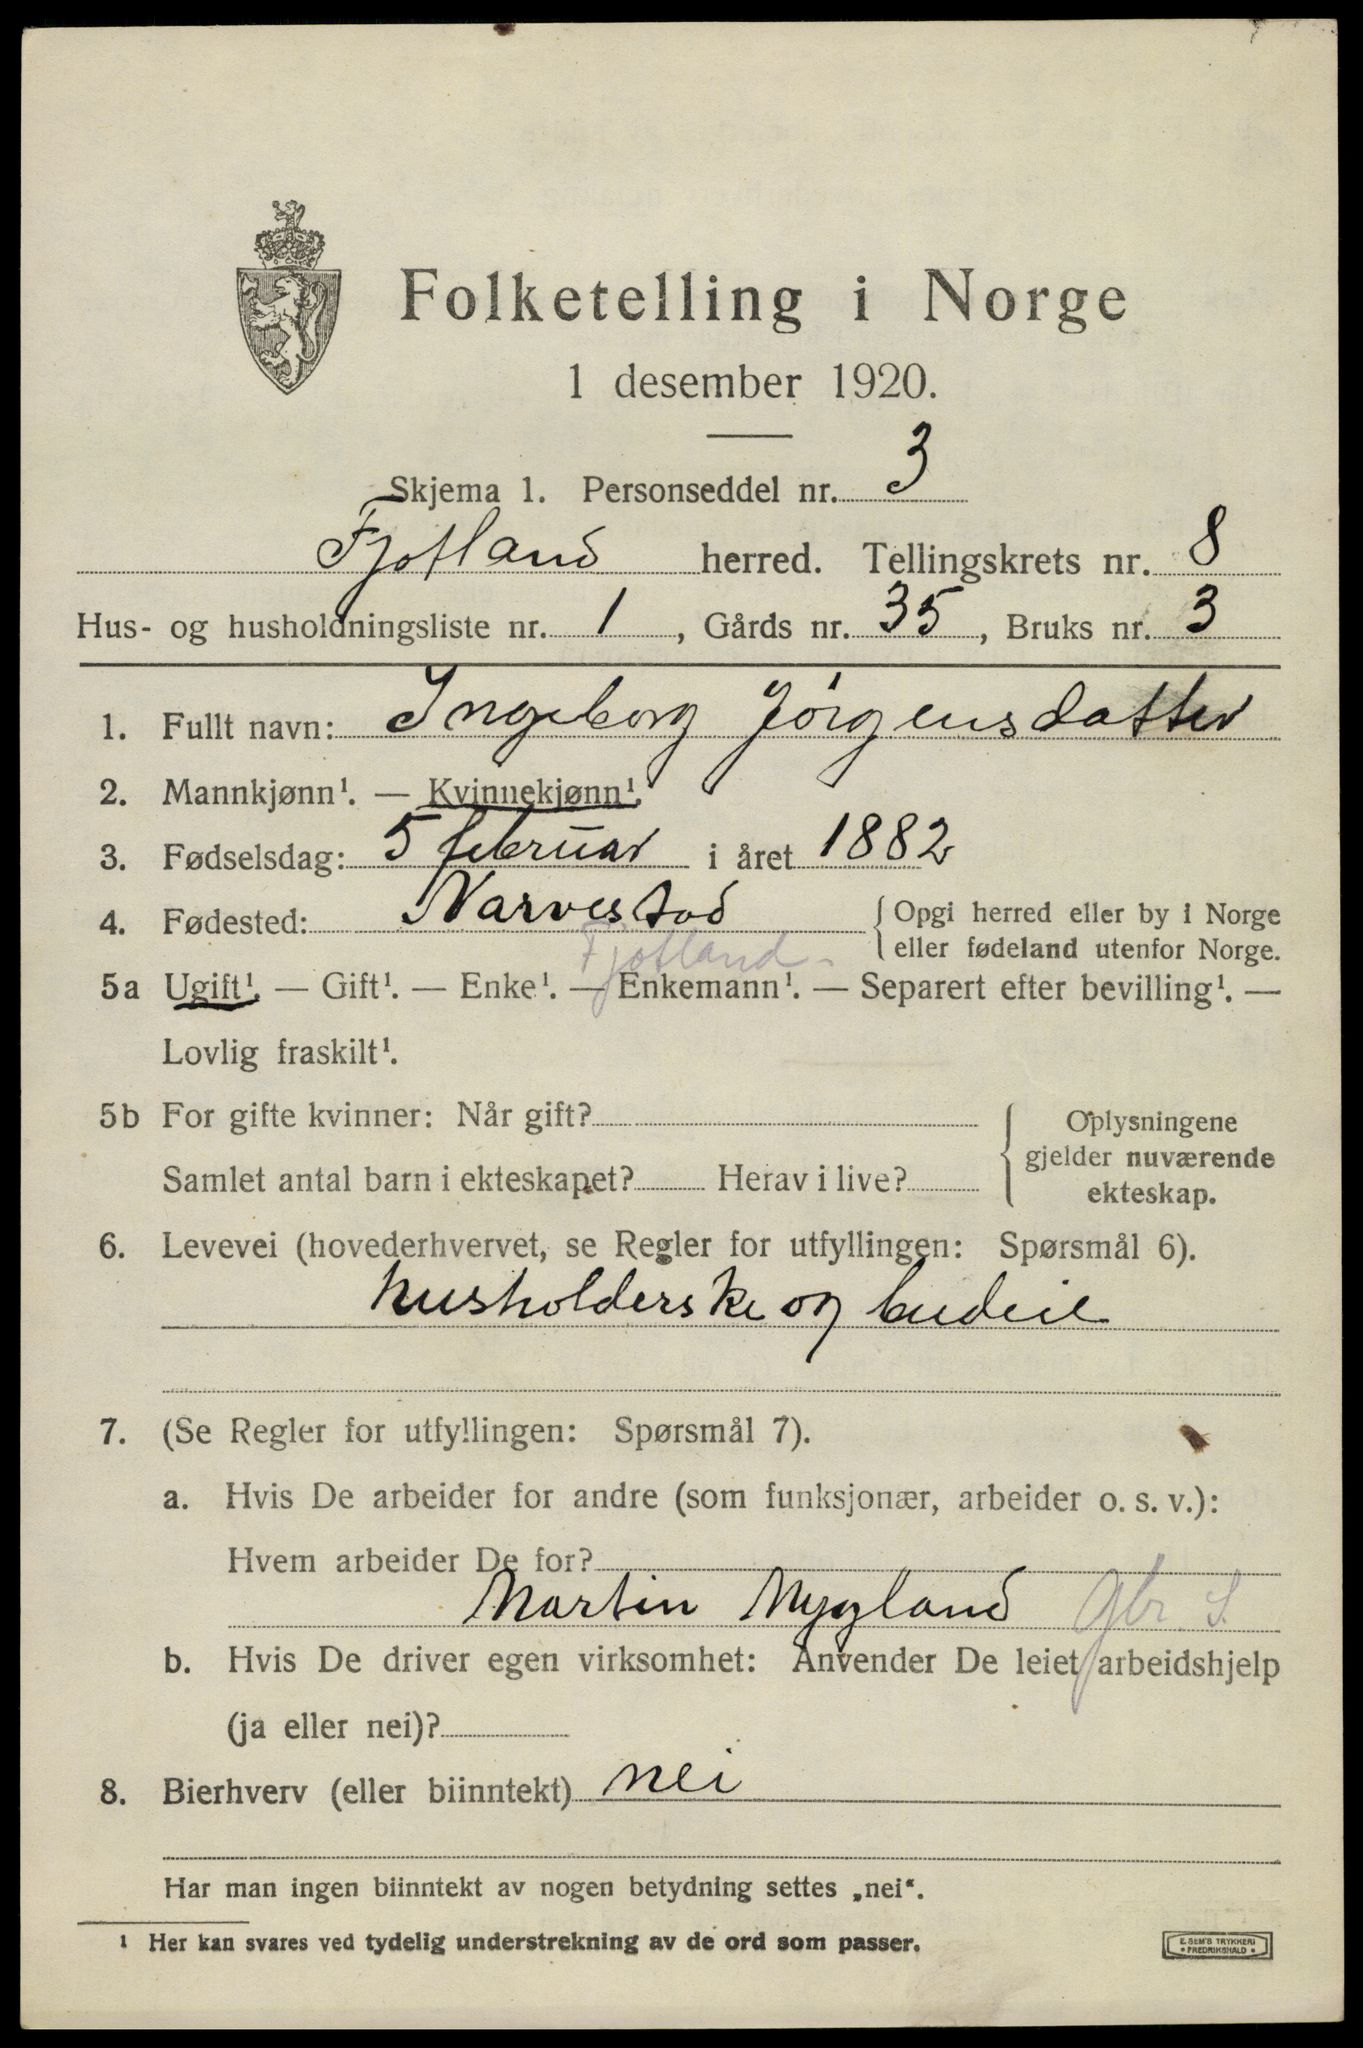 Folketelling i Norge
1 desember 1920.
Skjema 1. Personseddel nr. 3
Fjotland herred. Tellingskrets nr. 8
Hus- og husholdningsliste nr. 1, Gårds nr. 35, Bruks nr. 3
1. Fullt navn: Ingeborg Jörgensdatter
2. Mannkjønn¹. — Kvinnekjønn¹.
3. Fødselsdag: 5 februar i året 1882
4. Fødested: Narvestad { Opgi herred eller by i Norge
eller fødeland utenfor Norge.
Fjotland
5a Ugift¹. — Gift¹. — Enke¹. — Enkemann¹. — Separert efter bevilling¹. —
Lovlig fraskilt¹.
5b For gifte kvinner: Når gift? { Oplysningene
gjelder nuværende
ekteskap.
Samlet antal barn i ekteskapet? Herav i live?
6. Levevei (hovederhvervet, se Regler for utfyllingen: Spørsmål 6).
husholderske og budeie
7. (Se Regler for utfyllingen: Spørsmål 7).
a. Hvis De arbeider for andre (som funksjonær, arbeider o. s. v.):
Hvem arbeider De for?
Martin Mygland Gbr. S.
b. Hvis De driver egen virksomhet: Anvender De leiet arbeidshjelp
(ja eller nei)?
8. Bierhverv (eller biinntekt) nei
Har man ingen biinntekt av nogen betydning settes „nei“.
¹ Her kan svares ved tydelig understrekning av de ord som passer.
E. SEM'S TRYKKERI
• FREDRIKSHALD •